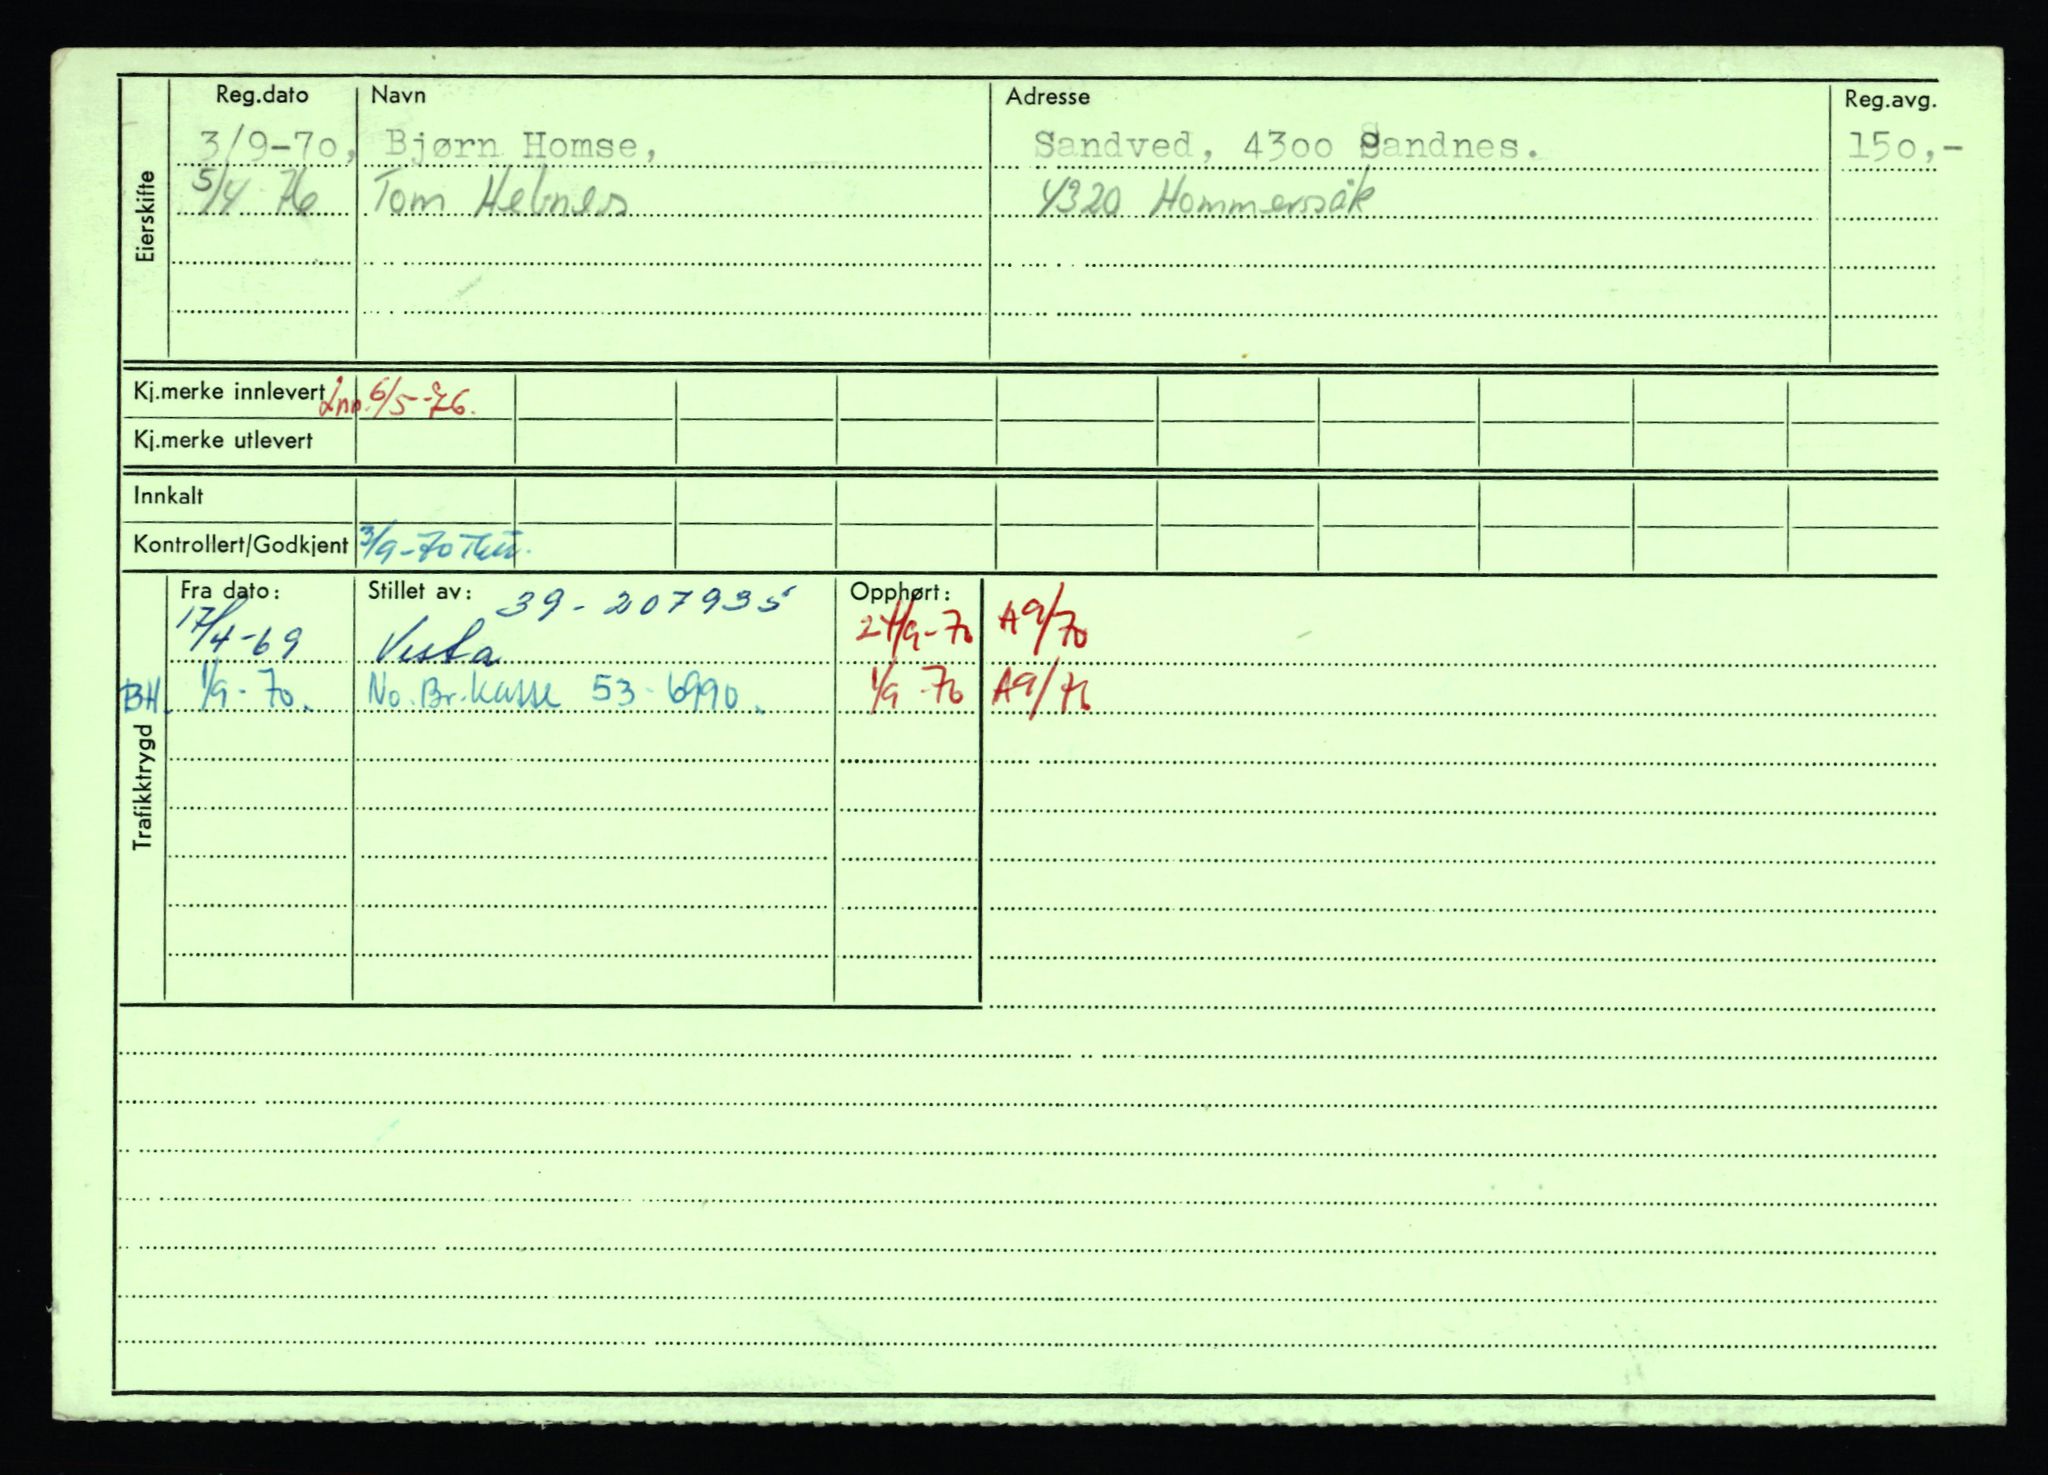 Eierskifte
Reg.dato Navn Adresse Reg.avg.
3/9-70, Bjørn Homse, Sandved, 4300 Sandnes. 150,-
5/4 76 Tom Hebnes 4320 Hommersåk
Kj.merke innlevert Inn. 6/5-76.
Kj.merke utlevert
Innkalt
Kontrollert/Godkjent 3/9-70
Trafikktrygd
Fra dato: Stillet av: 39-207935 Opphørt:
17/4-69 Vesta 24/9-70 A9/70
BH. 1/9-70. No.Br.kasse 53-6990. 1/9-76 A9/76